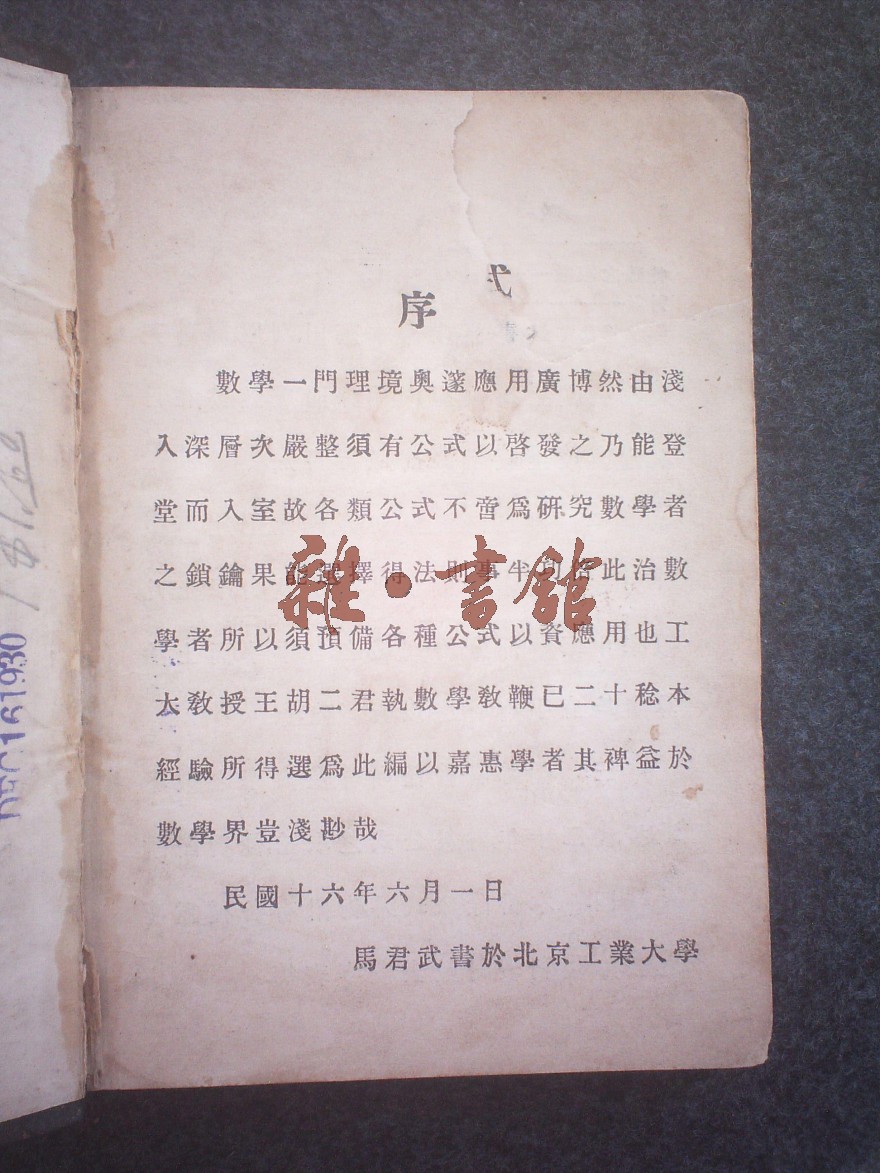 弍
序
數學一門理境奧邃應用廣博然由淺
入深層次嚴整須有公式以啓發之乃能登
堂而入室故各類公式不啻爲硏究數學者
之鎖鑰果能選擇得法則事半功倍此治數
學者所以須預備各種公式以資應用也工
大敎授王胡二君執數學敎鞭已二十稔本
經驗所得選爲此編以嘉惠學者其裨益於
數學界豈淺尠哉
民國十六年六月一日
馬君武書於北京工業大學
雜·書館
DEC 16 1930